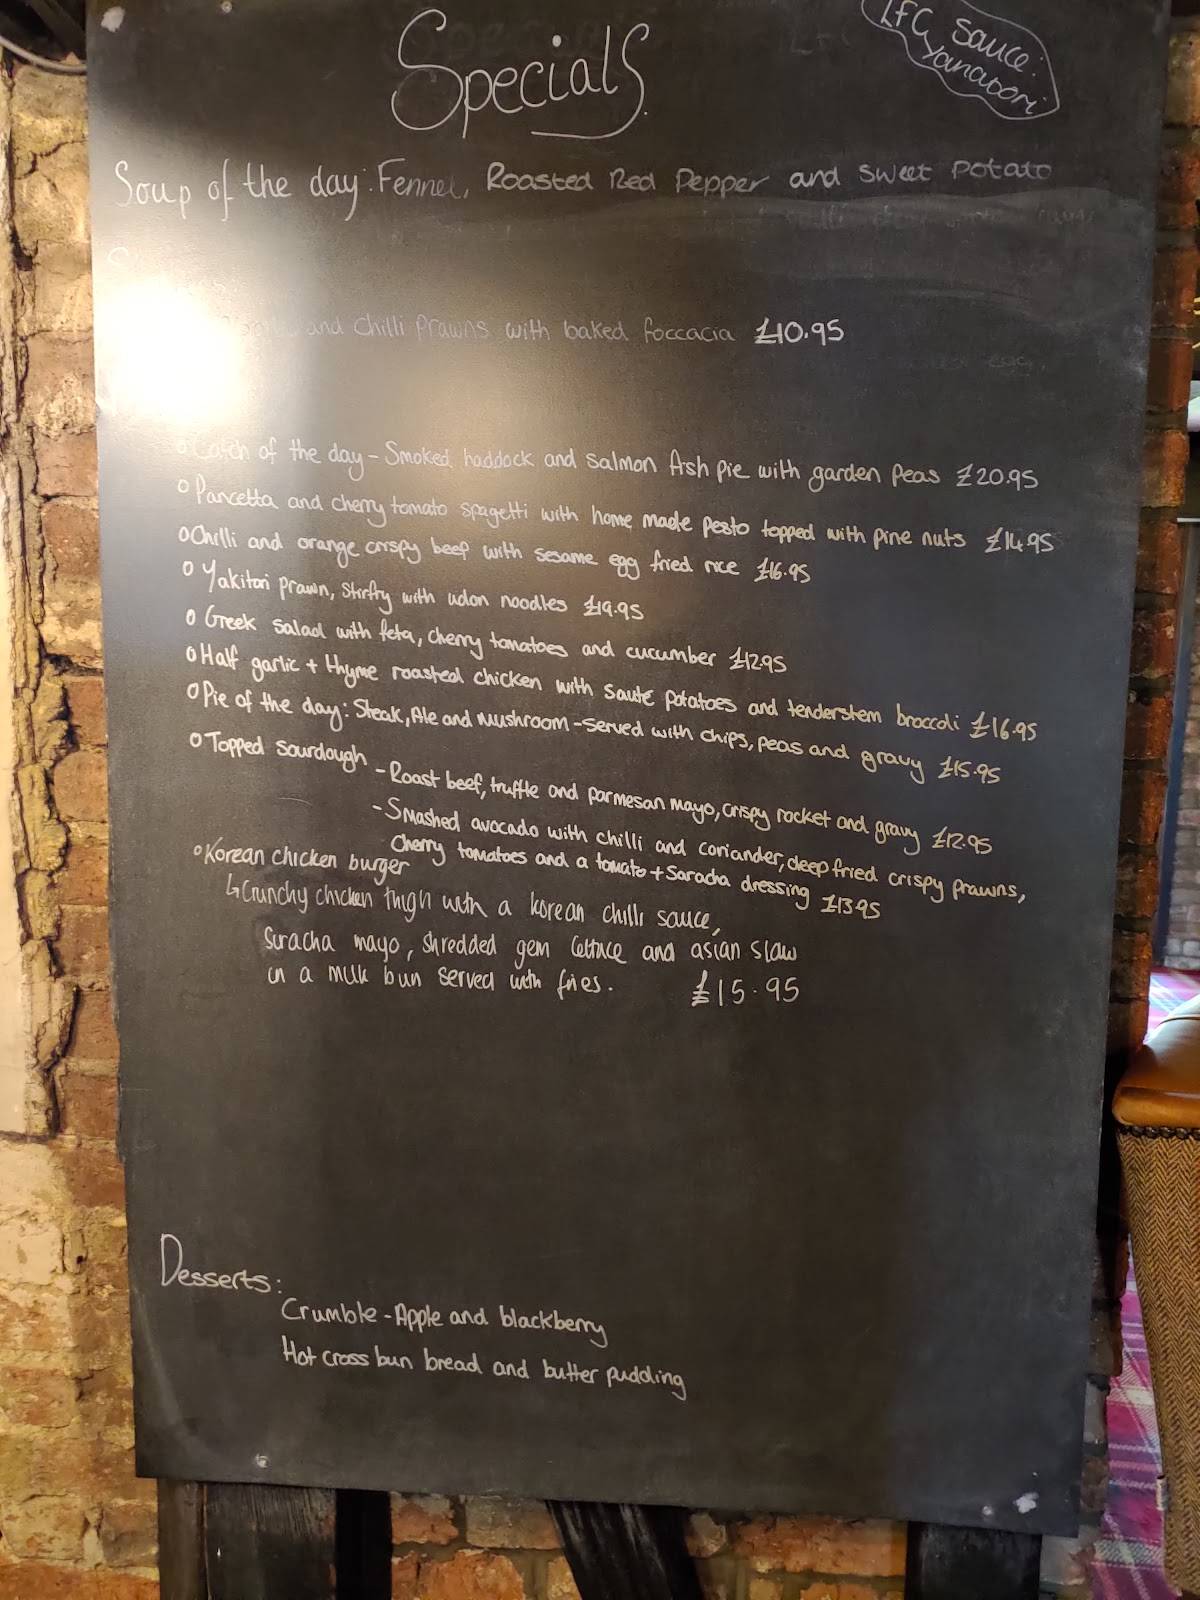 Specials.
LFC Sauce:
Yanatori
Soup of the day: Fennel, Roasted Red Pepper and Sweet Potato
and chilli Prawns with baked foccacia £10.95
o Catch of the day - Smoked haddock and salmon fish pie with garden peas £20.95
o Pancetta and cherry tomato spagetti with home made pesto topped with pine nuts £14.95
o Chilli and orange crispy beef with sesame egg fried rice £16.95
o Yakitori prawn, stirfry with udon noodles £19.95
o Greek salad with feta, cherry tomatoes and cucumber £12.95
o Half garlic + thyme roasted chicken with sauté potatoes and tenderstem broccoli £16.95
o Pie of the day: Steak, Ale and mushroom - served with chips, peas and gravy £15.95
o Topped sourdough - Roast beef, truffle and parmesan mayo, crispy rocket and gravy £12.95
- Smashed avocado with chilli and coriander, deep fried crispy prawns,
cherry tomatoes and a tomato + Saracha dressing £13.95
o Korean chicken burger
↳ Crunchy chicken thigh with a korean chilli sauce,
Suracha mayo, shredded gem lettuce and asian slaw
in a milk bun served with fries. £15.95
Desserts:
Crumble - Apple and blackberry
Hot cross bun bread and butter pudding